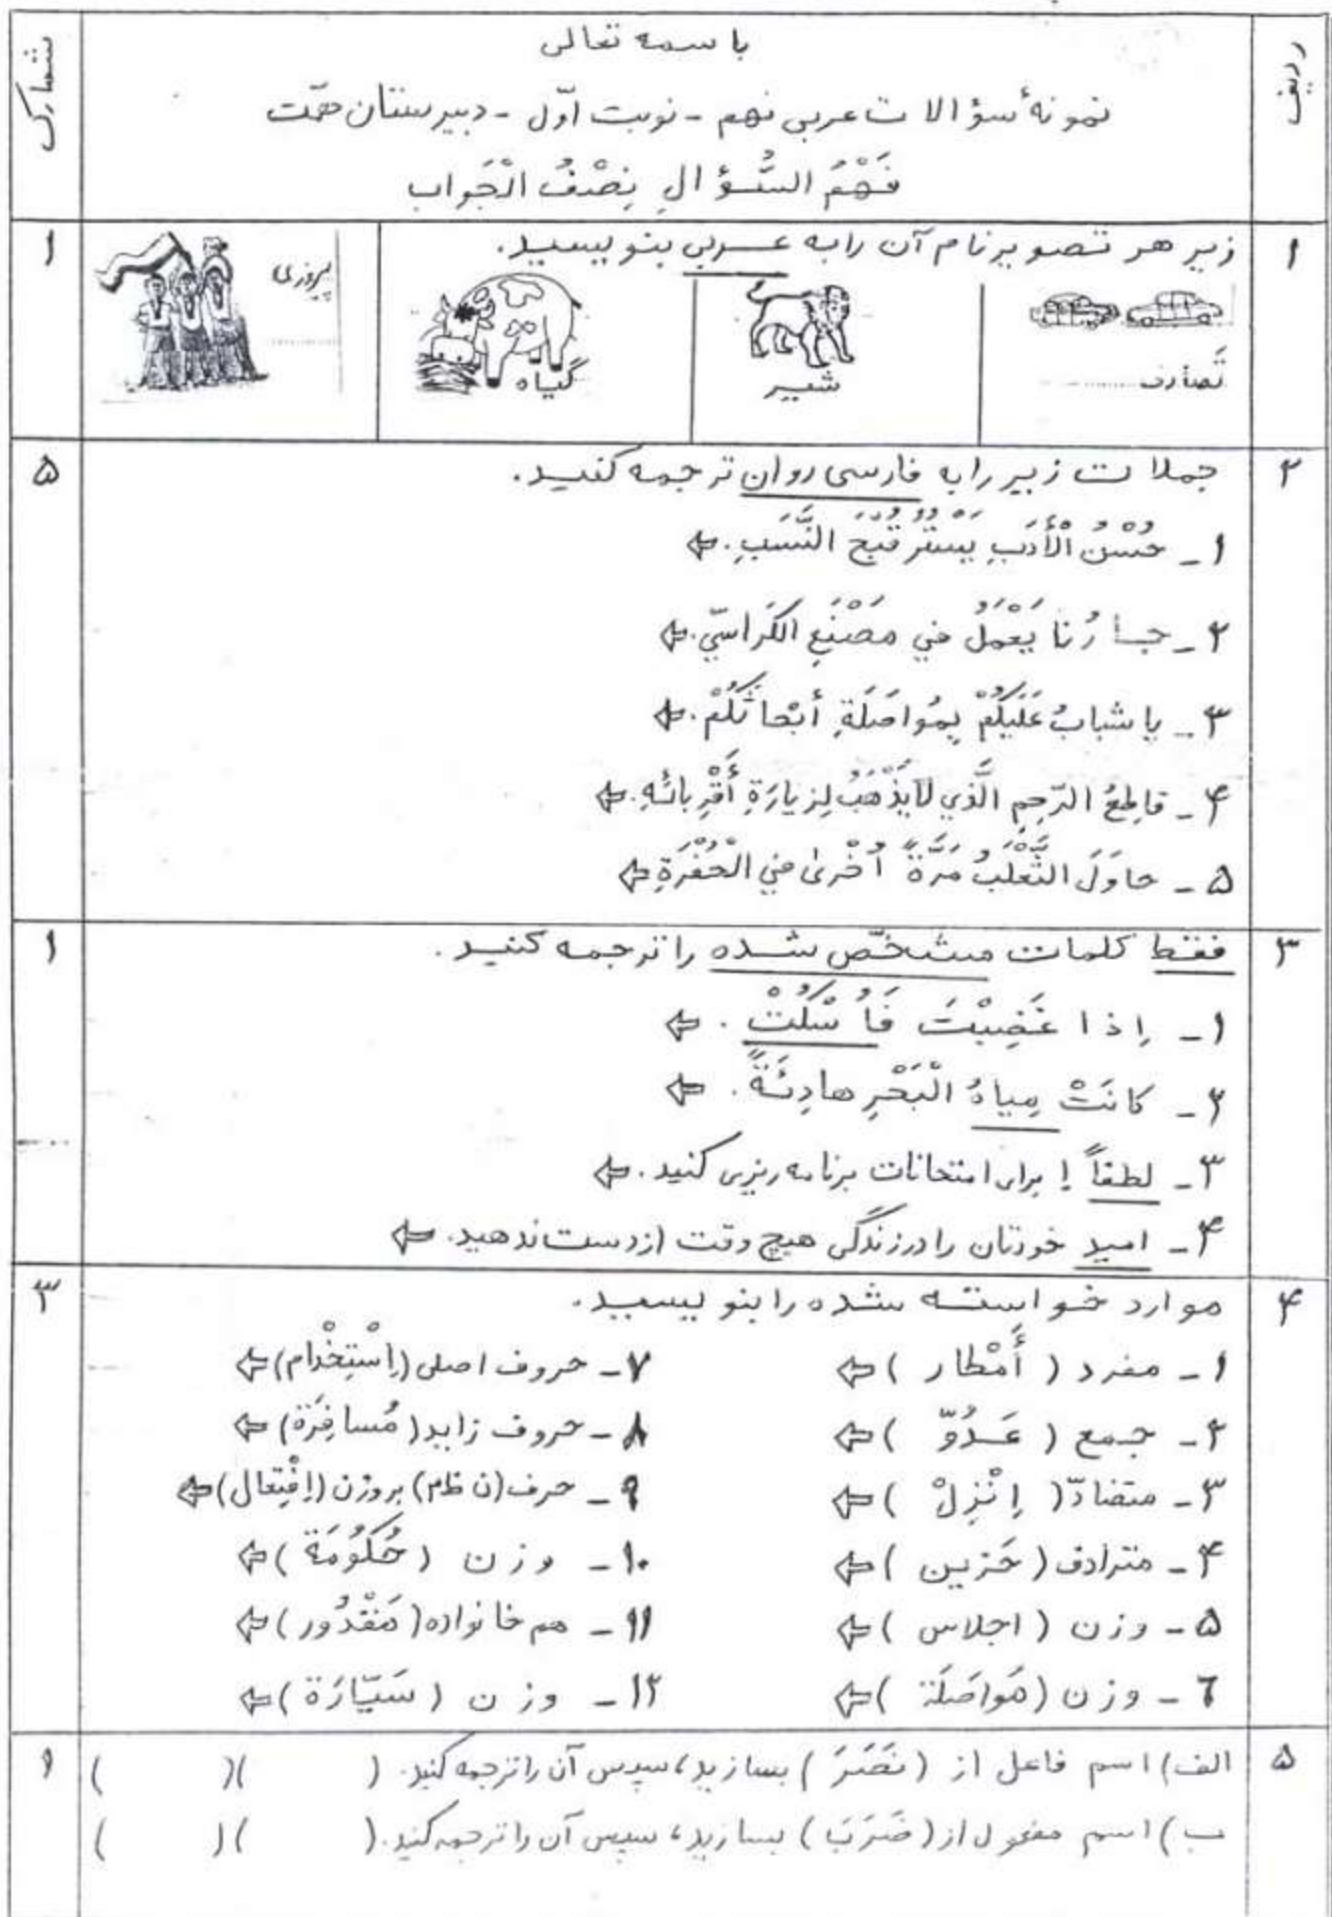 ردیف
باسمه تعالی
شمارک
نمونهٔ سؤالات عربی نهم - نوبت اوّل - دبیرستان همّت
فَهْمُ السُّؤالِ نِصْفُ الْجَواب
۱ زیر هر تصویر نام آن را به عربی بنویسید. ۱
تَصادف ........
شیر
گیاه
پیروزی ........
۲ جملات زیر را به فارسی روان ترجمه کنید. ۵
۱ - حُسْنُ الْأَدَبِ یَسْتُرُ قُبْحَ النَّسَبِ. ⇦
۲ - جارُنا یَعْمَلُ في مَصْنَعِ الکَراسيّ. ⇦
۳ - یا شبابُ عَلَیْکُمْ بِمُواصَلَةِ أبْحاثکُمْ. ⇦
۴ - قاطِعُ الرَّحِمِ الَّذي لایَذْهَبُ لِزیارَةِ أَقْرِبائهِ. ⇦
۵ - حاوَلَ الثَّعْلَبُ مَرَّةً اُخْریٰ في الْحُفْرَةِ ⇦
۳ فقط کلمات مشخّص شده را ترجمه کنید. ۱
۱ - إذا غَضِبْتَ فَاُسْکُتْ. ⇦
۲ - کانَتْ مِیاهُ الْبَحْرِ هادِئَةً. ⇦
۳ - لطفاً ! برای امتحانات برنامه ریزی کنید. ⇦
۴ - امید خودتان را در زندگی هیچ وقت از دست ندهید. ⇦
۴ موارد خواسته شده را بنویسید. ۳
۱ - مفرد ( أَمْطار ) ⇦
۲ - جمع ( عَدُوّ ) ⇦
۳ - متضادّ ( إنْزِلْ ) ⇦
۴ - مترادف ( حَزین ) ⇦
۵ - وزن ( اجلاس ) ⇦
۶ - وزن ( مُواصَلَة ) ⇦
۷ - حروف اصلی (إسْتِخْدام) ⇦
۸ - حروف زاید (مُسافِرَة) ⇦
۹ - حرف (ن ظ م) بر وزن (إفْتِعال) ⇦
۱۰ - وزن ( حُکُومَة ) ⇦
۱۱ - هم خانواده ( مَقْدُور ) ⇦
۱۲ - وزن ( سَیّارَة ) ⇦
۵ الف) اسم فاعل از ( نَصَرَ ) بسازید، سپس آن را ترجمه کنید. ( )( ) ۱
ب) اسم مفعول از ( ضَرَبَ ) بسازید، سپس آن را ترجمه کنید. ( )( )